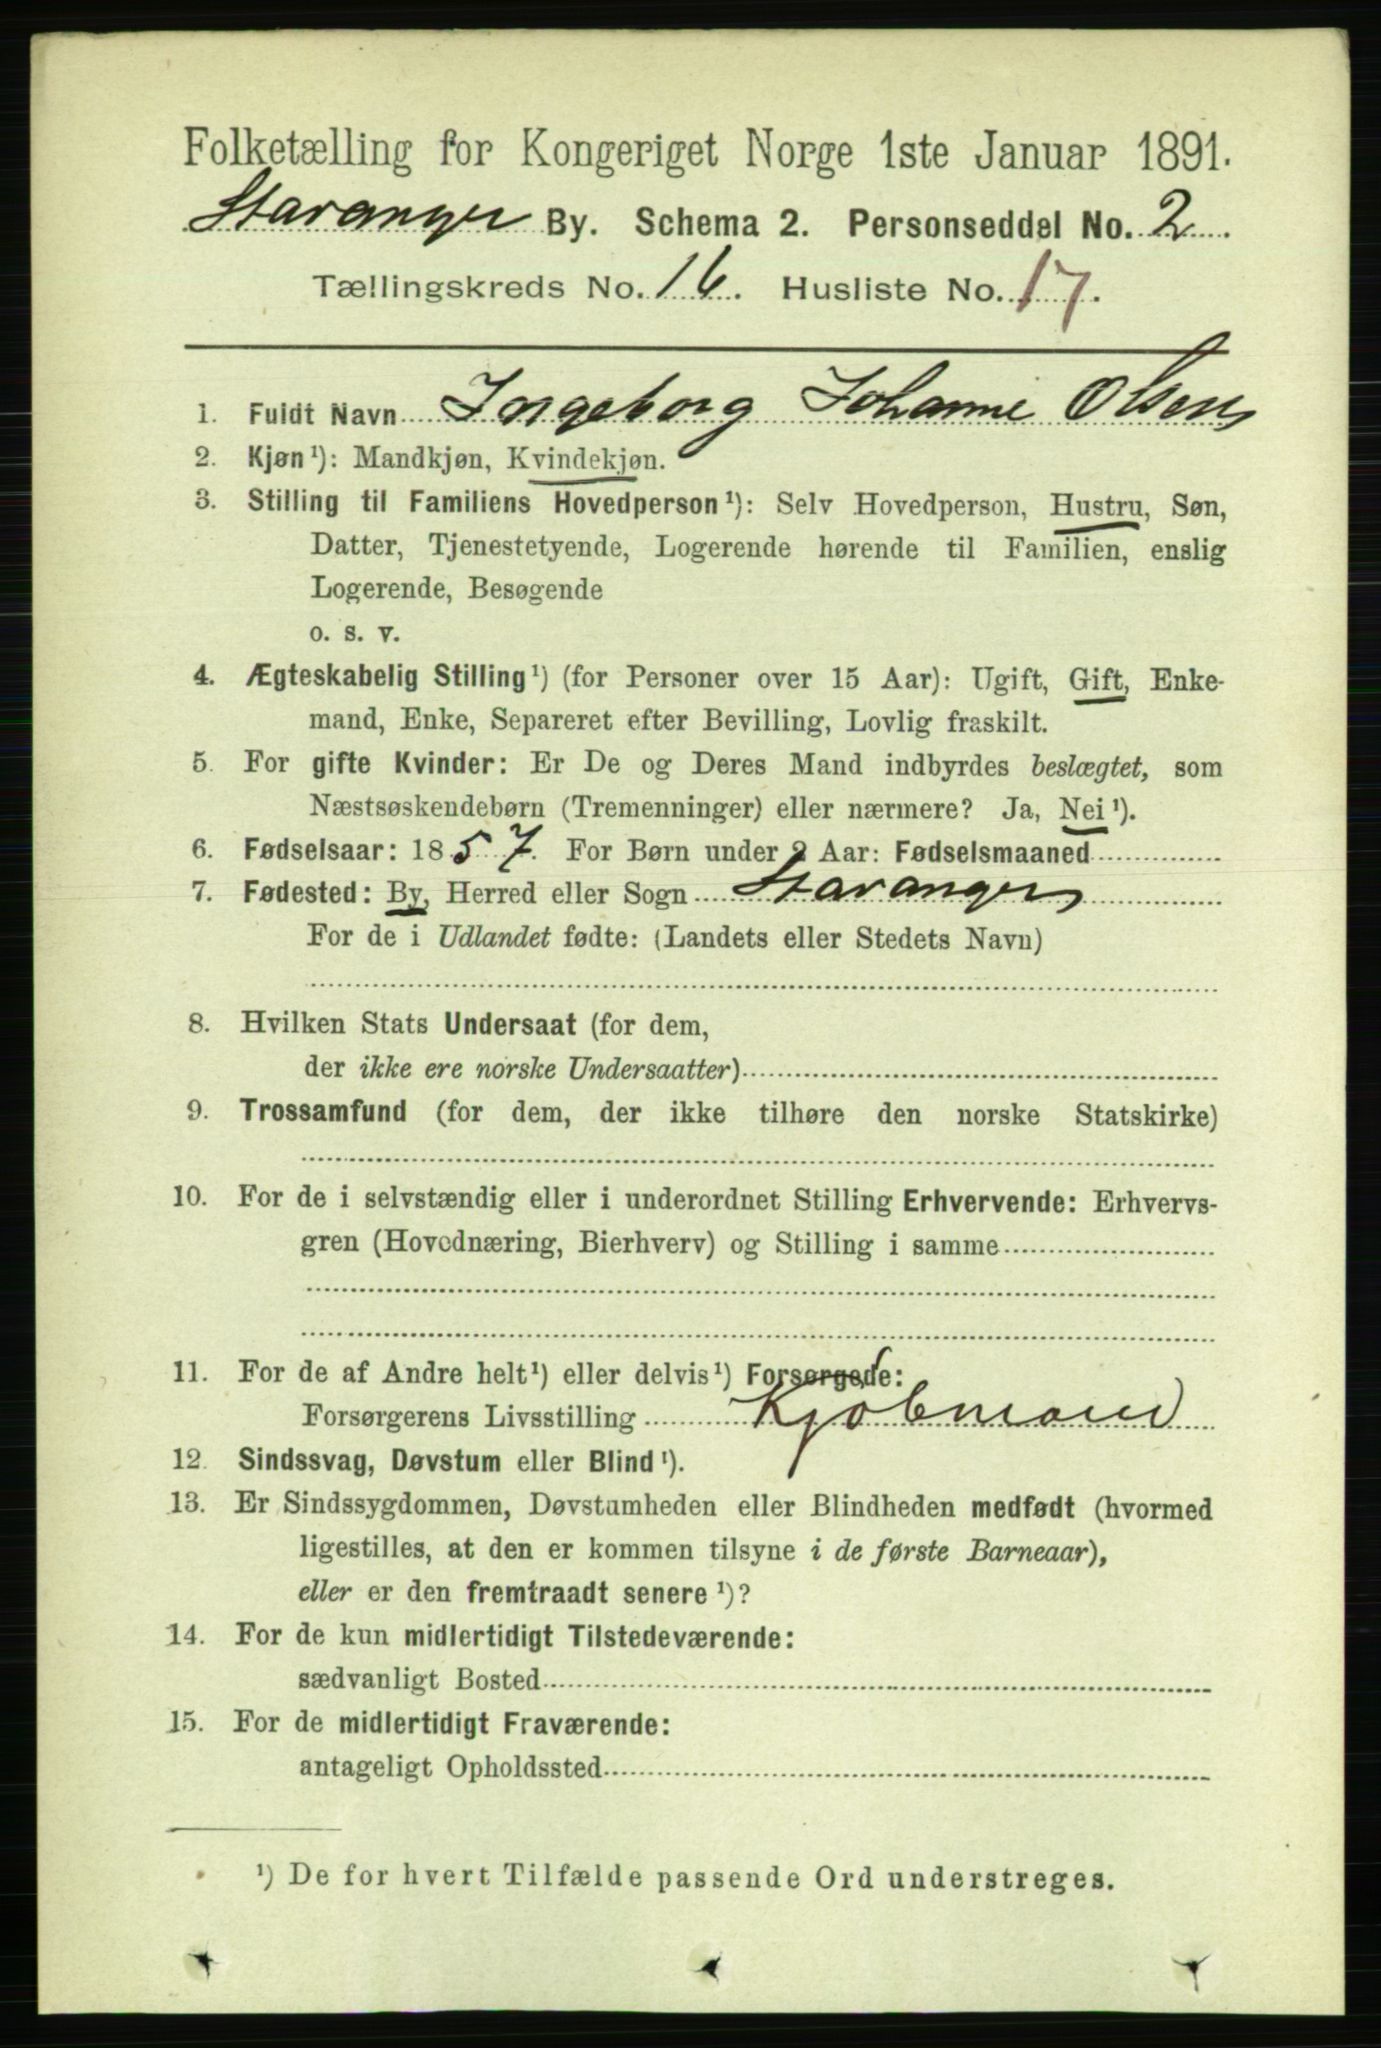 Folketælling for Kongeriget Norge 1ste Januar 1891.
Stavanger By. Schema 2. Personseddel No. 2
Tællingskreds No. 16. Husliste No. 17.
1. Fuldt Navn Ingeborg Johanne Olsen
2. Kjøn¹): Mandkjøn, Kvindekjøn.
3. Stilling til Familiens Hovedperson¹): Selv Hovedperson, Hustru, Søn,
Datter, Tjenestetyende, Logerende hørende til Familien, enslig
Logerende, Besøgende
o. s. v.
4. Ægteskabelig Stilling¹) (for Personer over 15 Aar): Ugift, Gift, Enke-
mand, Enke, Separeret efter Bevilling, Lovlig fraskilt.
5. For gifte Kvinder: Er De og Deres Mand indbyrdes beslægtet, som
Næstsøskendebørn (Tremenninger) eller nærmere? Ja, Nei¹).
6. Fødselsaar: 1857. For Børn under 2 Aar: Fødselsmaaned
7. Fødested: By, Herred eller Sogn Stavanger
For de i Udlandet fødte: (Landets eller Stedets Navn)
8. Hvilken Stats Undersaat (for dem,
der ikke ere norske Undersaatter)
9. Trossamfund (for dem, der ikke tilhøre den norske Statskirke)
10. For de i selvstændig eller i underordnet Stilling Erhvervende: Erhvervs-
gren (Hovednæring, Bierhverv) og Stilling i samme
11. For de af Andre helt¹) eller delvis¹) Forsørgede:
Forsørgerens Livsstilling Kjøbmand
12. Sindssvag, Døvstum eller Blind¹).
13. Er Sindssygdommen, Døvstumheden eller Blindheden medfødt (hvormed
ligestilles, at den er kommen tilsyne i de første Barneaar),
eller er den fremtraadt senere¹)?
14. For de kun midlertidigt Tilstedeværende:
sædvanligt Bosted
15. For de midlertidigt Fraværende:
antageligt Opholdssted
¹) De for hvert Tilfælde passende Ord understreges.